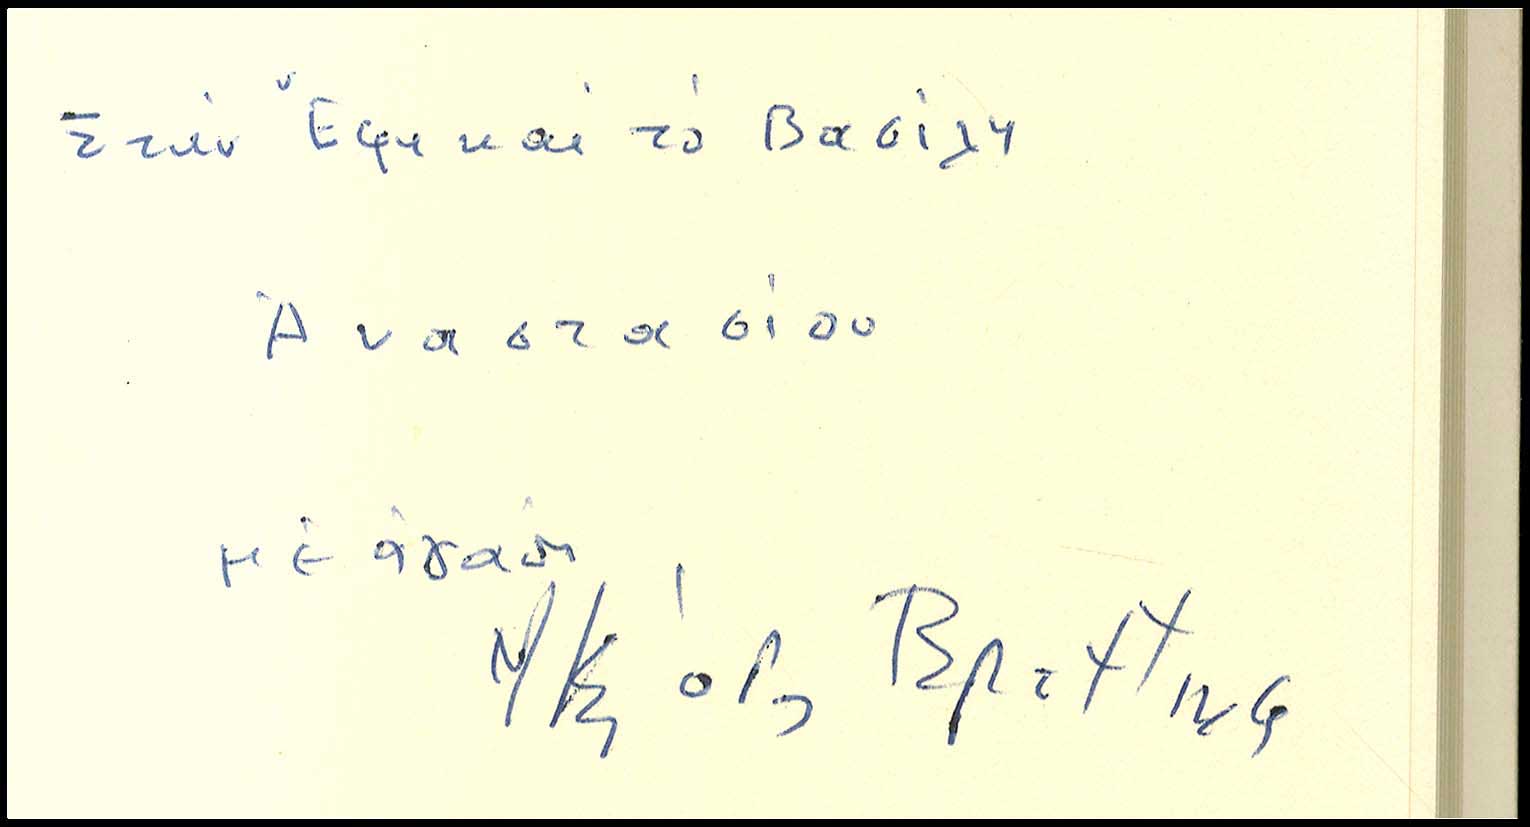 Στὴν Ἔφη καὶ τὸ Βασίλη
Ἀναστασίου
μὲ ἀγάπη
Νικηφόρος Βρεττάκος